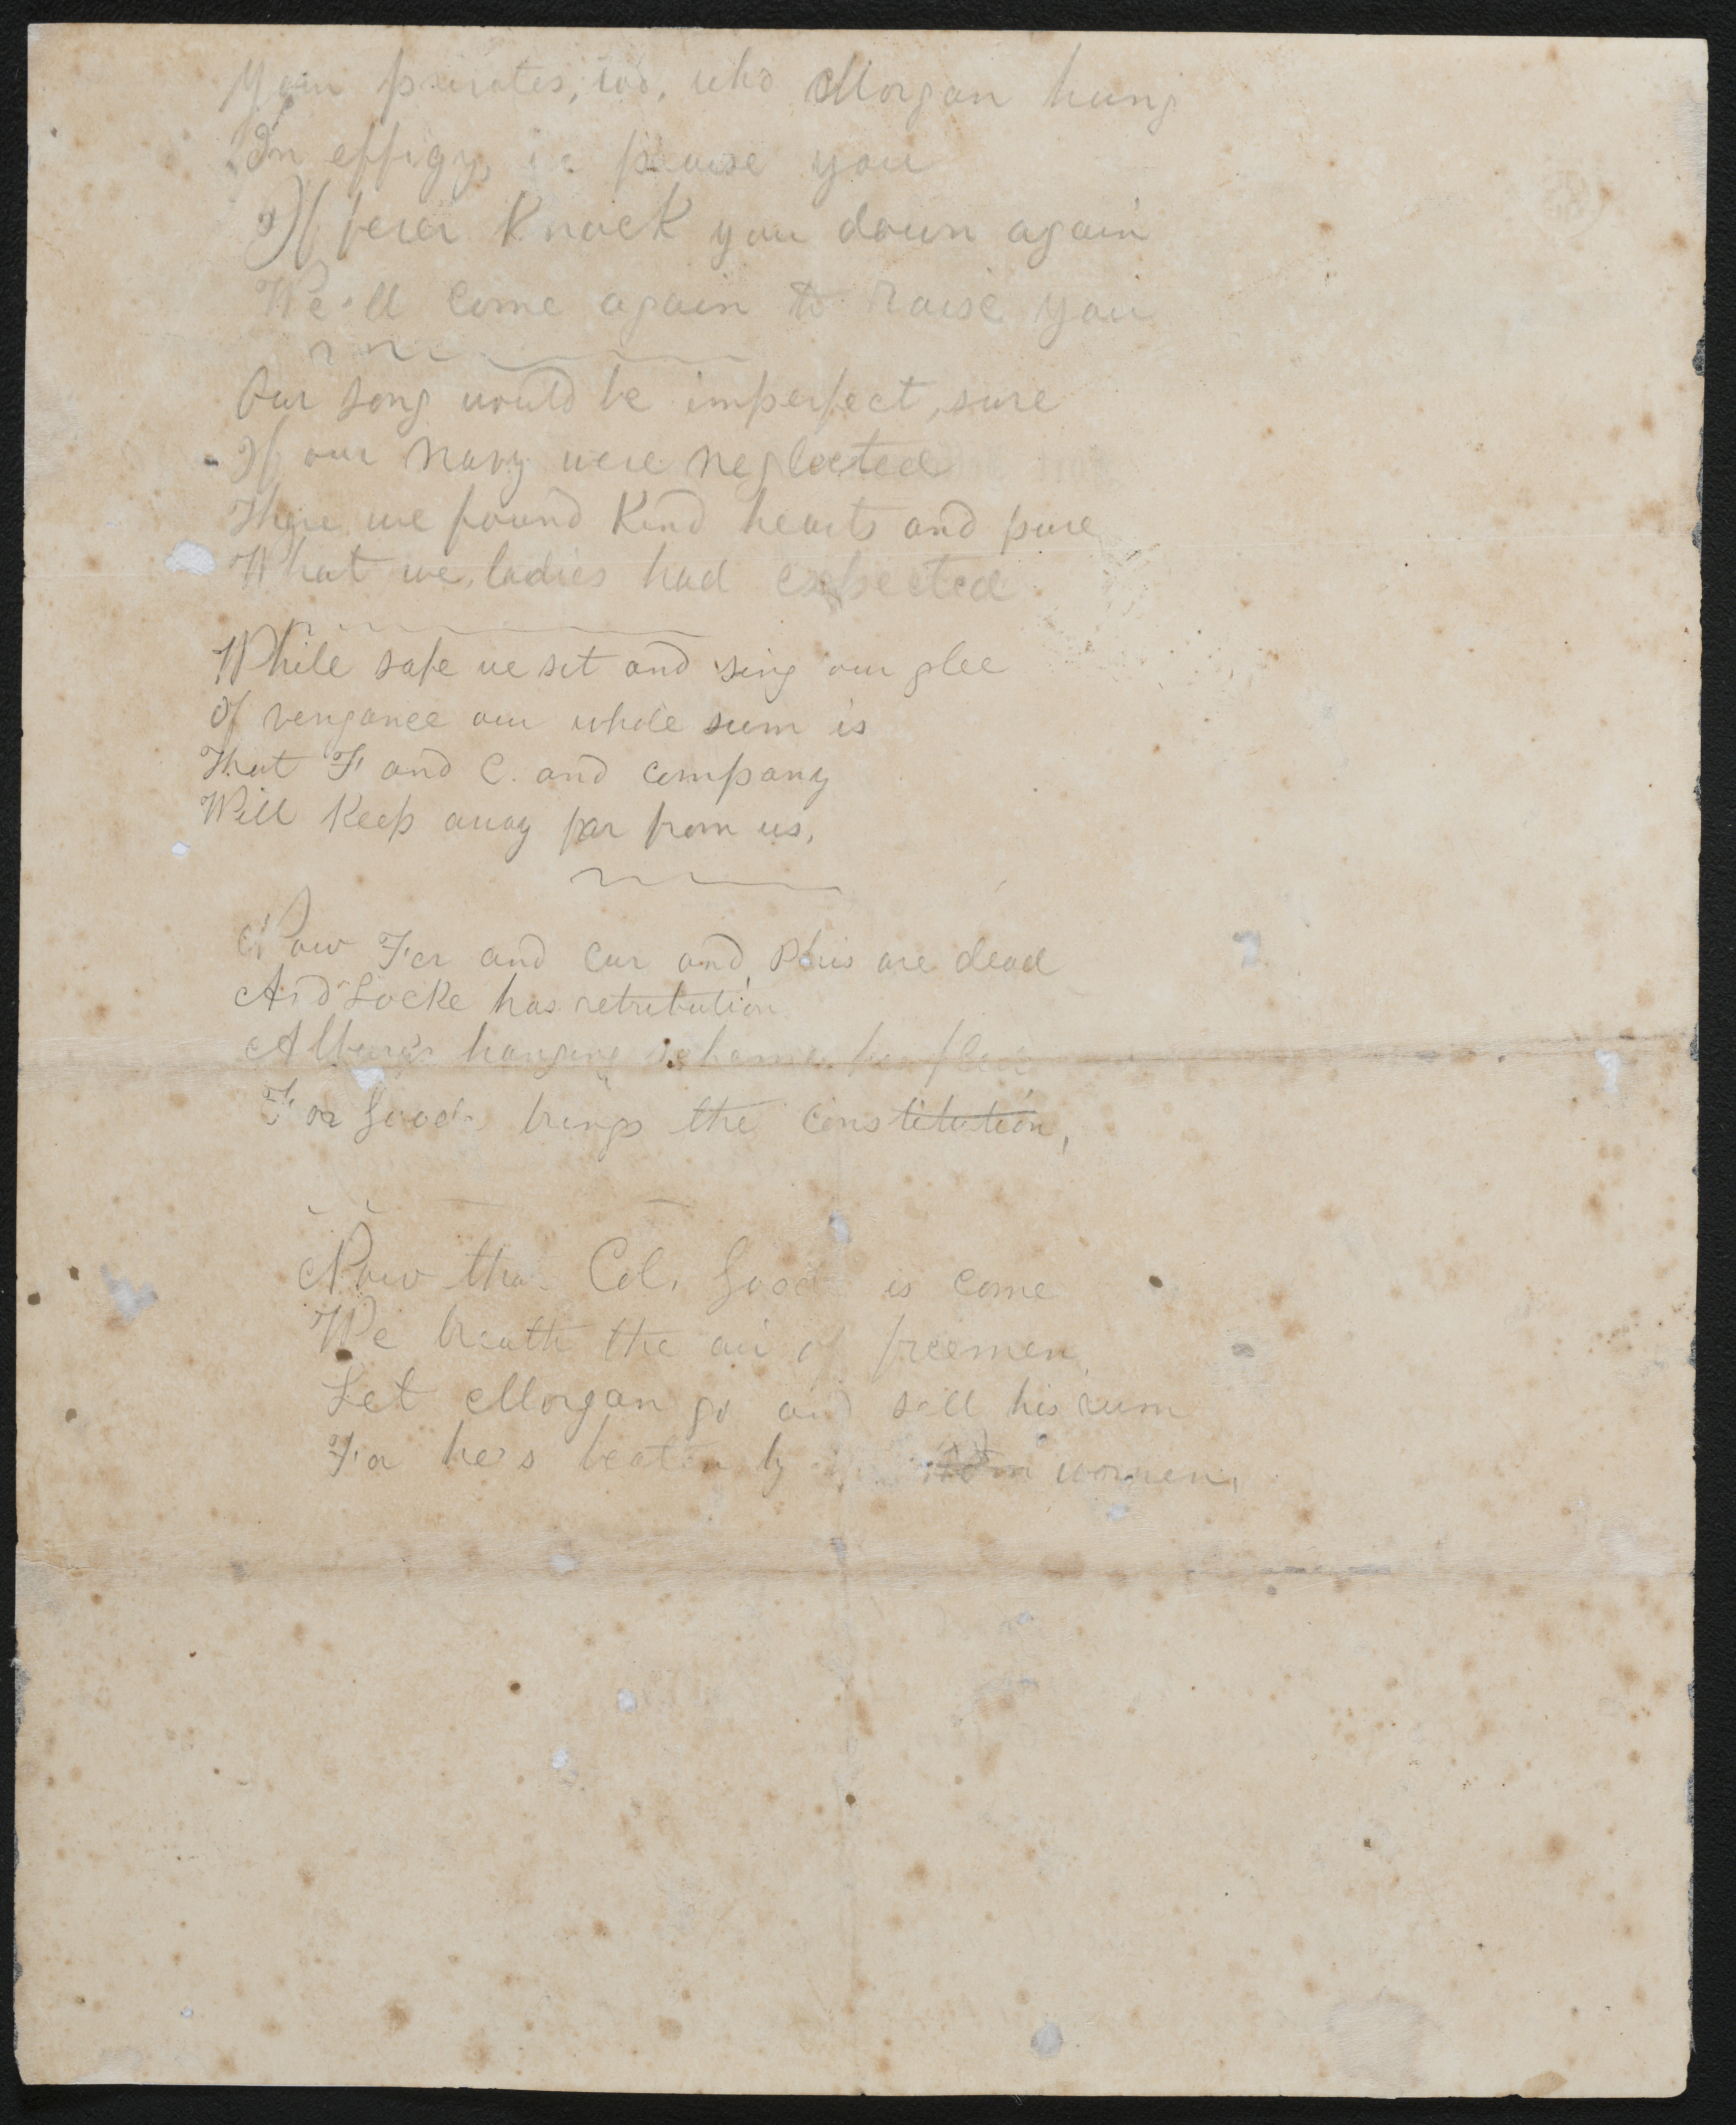 Your pirates, too, who Morgan hung
In effigy, praise you
If fever Knock you down again
We'll come again to raise you
Our song would be imperfect, sure
If our Navy were neglected
There we found Kind hearts and pure
What we, ladies had expected
While safe we sit and sing our glee
Of vengance our whole sum is
That F and C. and company
Will Keep away far from us.
Now Fer and Cur and are dead
And Locke has retribution
hanging scheme
For Good brings the constitution,
Now that Col. Good is come
We breath the air of freemen
Let Morgan go and sell his rum
For he's beaten by women.